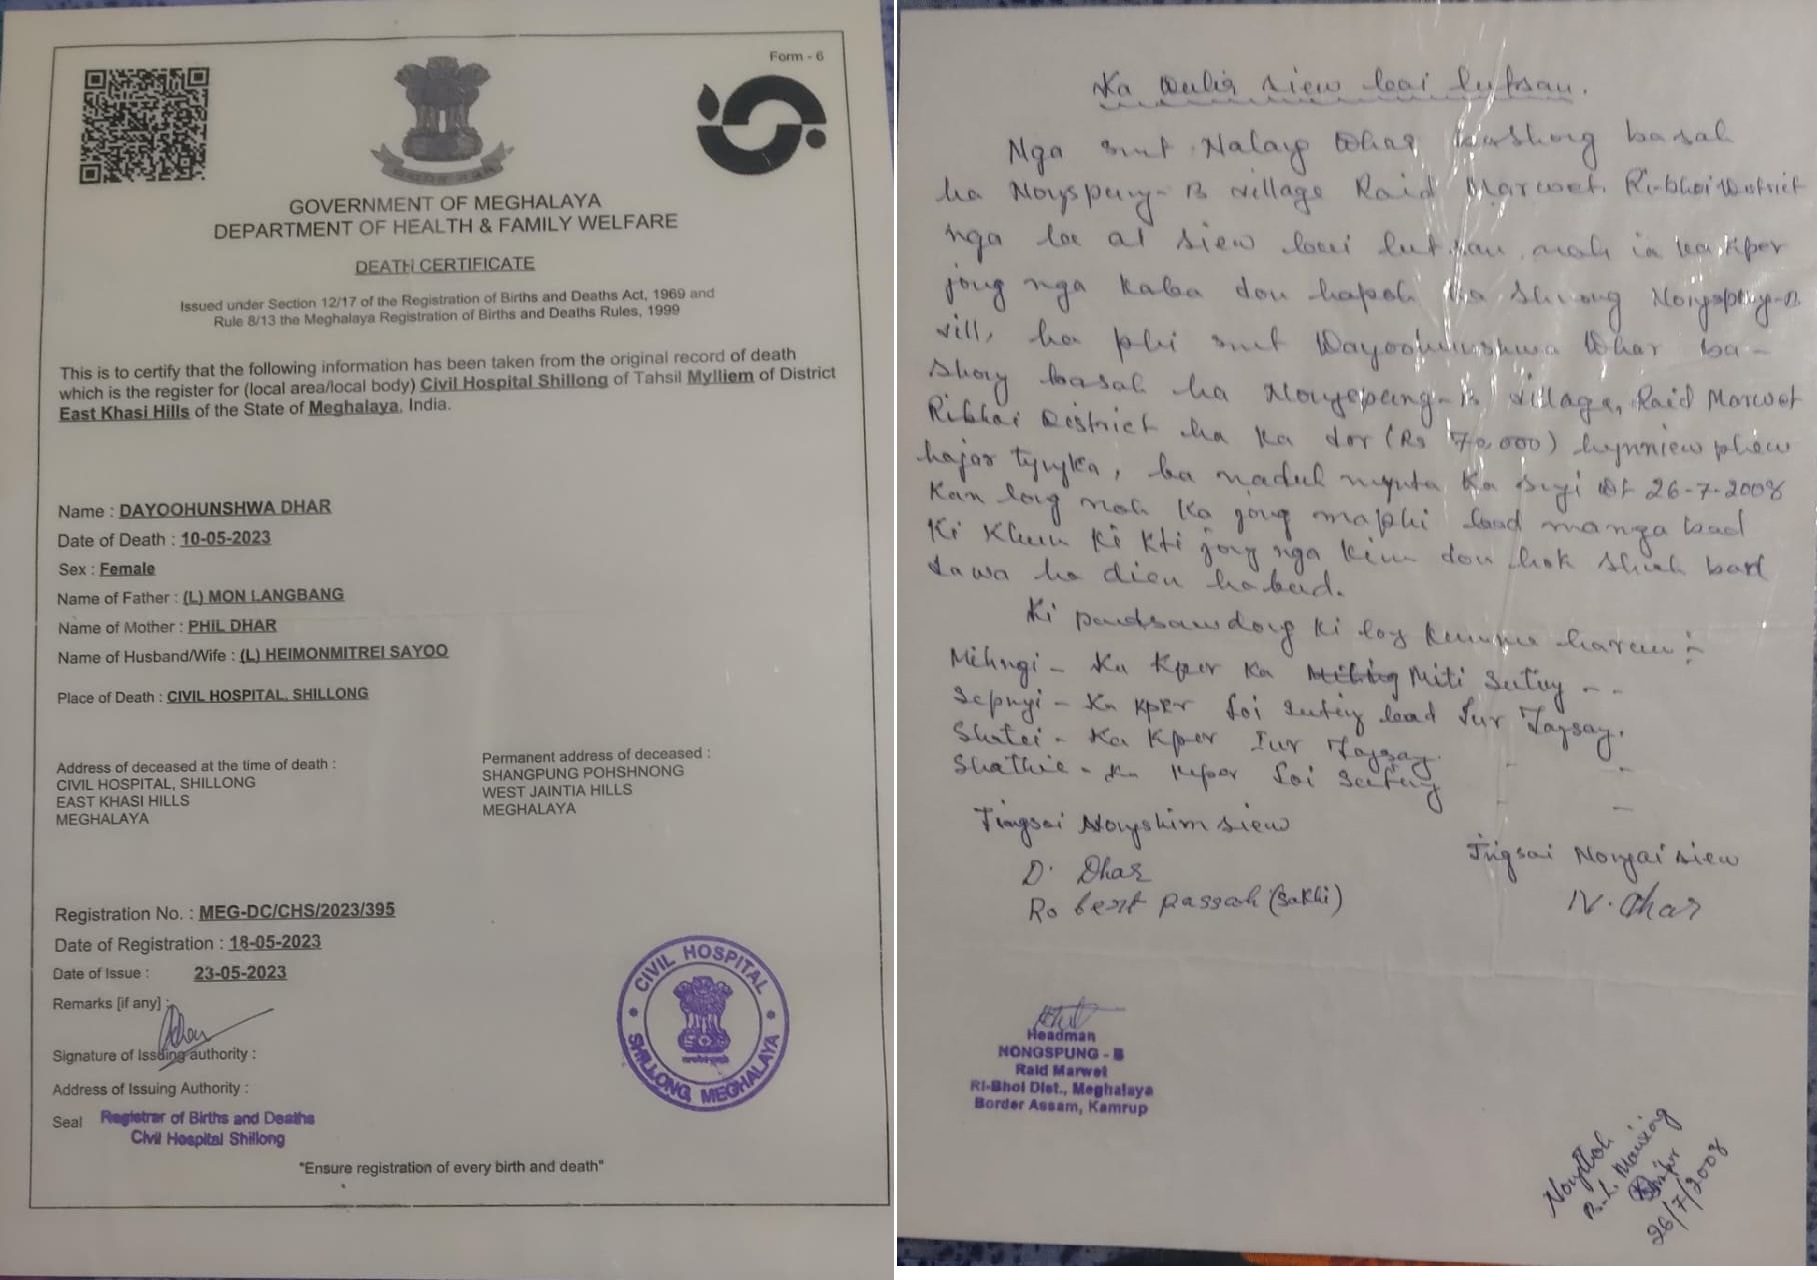 Form - 6
GOVERNMENT OF MEGHALAYA
DEPARTMENT OF HEALTH & FAMILY WELFARE
DEATH CERTIFICATE
Issued under Section 12/17 of the Registration of Births and Deaths Act, 1969 and
Rule 8/13 the Meghalaya Registration of Births and Deaths Rules, 1999
This is to certify that the following information has been taken from the original record of death
which is the register for (local area/local body) Civil Hospital Shillong of Tahsil Mylliem of District
East Khasi Hills of the State of Meghalaya, India.
Name : DAYOOHUNSHWA DHAR
Date of Death : 10-05-2023
Sex : Female
Name of Father : (L) MON LANGBANG
Name of Mother : PHIL DHAR
Name of Husband/Wife : (L) HEIMONMITREI SAYOO
Place of Death : CIVIL HOSPITAL, SHILLONG
Address of deceased at the time of death :
CIVIL HOSPITAL, SHILLONG
EAST KHASI HILLS
MEGHALAYA
Permanent address of deceased :
SHANGPUNG POHSHNONG
WEST JAINTIA HILLS
MEGHALAYA
Registration No. : MEG-DC/CHS/2023/395
Date of Registration : 18-05-2023
Date of Issue : 23-05-2023
Remarks [if any] :
Signature of Issuing authority :
Address of Issuing Authority :
Seal Registrar of Births and Deaths
Civil Hospital Shillong
CIVIL HOSPITAL
SHILLONG, MEGHALAYA
"Ensure registration of every birth and death"
Ka siew lut san.
Nga smt Nalang Dhar bashong basah
ha Nongspung-B village Raid Marwet Ri-bhoi District
nga la ai siew lut san noh ia ka kper
jong nga kaba don hapoh ka shnong Nongspung-B
vill, ha phi smt Dayoohunshwa Dhar ba-
shong basah ha Nongspung-B village, Raid Marwet
Ribhoi District ha ka dor (Rs 70,000) hynniew phew
hajar tyngka, ba naduh mynta ka sngi Dt 26-7-2008
Kan long noh ka jong maphi bad manga bad
Ki Khun ki kti jong nga kim don hok shuh ban
dawa ha dien habud.
Ki pudsawdong ki long kumne harum :-
Mihngi - Ka Kper Ka Miti Suting - -
Sepngi - Ka kper Loi Suting bad Tur Tangsang.
Shatei - Ka Kper Tur Tangsang.
Shathie - Ka kper Loi Suting
Jingsai Nongshim siew
D. Dhar
Robert Passah (Sakhi)
Jingsai Nongai siew
N. Dhar
Headman
NONGSPUNG - B
Raid Marwet
Ri-Bhoi Dist., Meghalaya
Border Assam, Kamrup
Nongthoh
26/7/2008